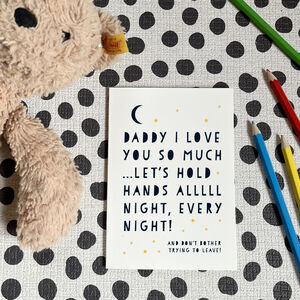 DADDY I LOVE
YOU SO MUCH
...LET'S HOLD
HANDS ALLLLL
NIGHT, EVERY
NIGHT!
AND DON'T BOTHER
TRYING TO LEAVE!